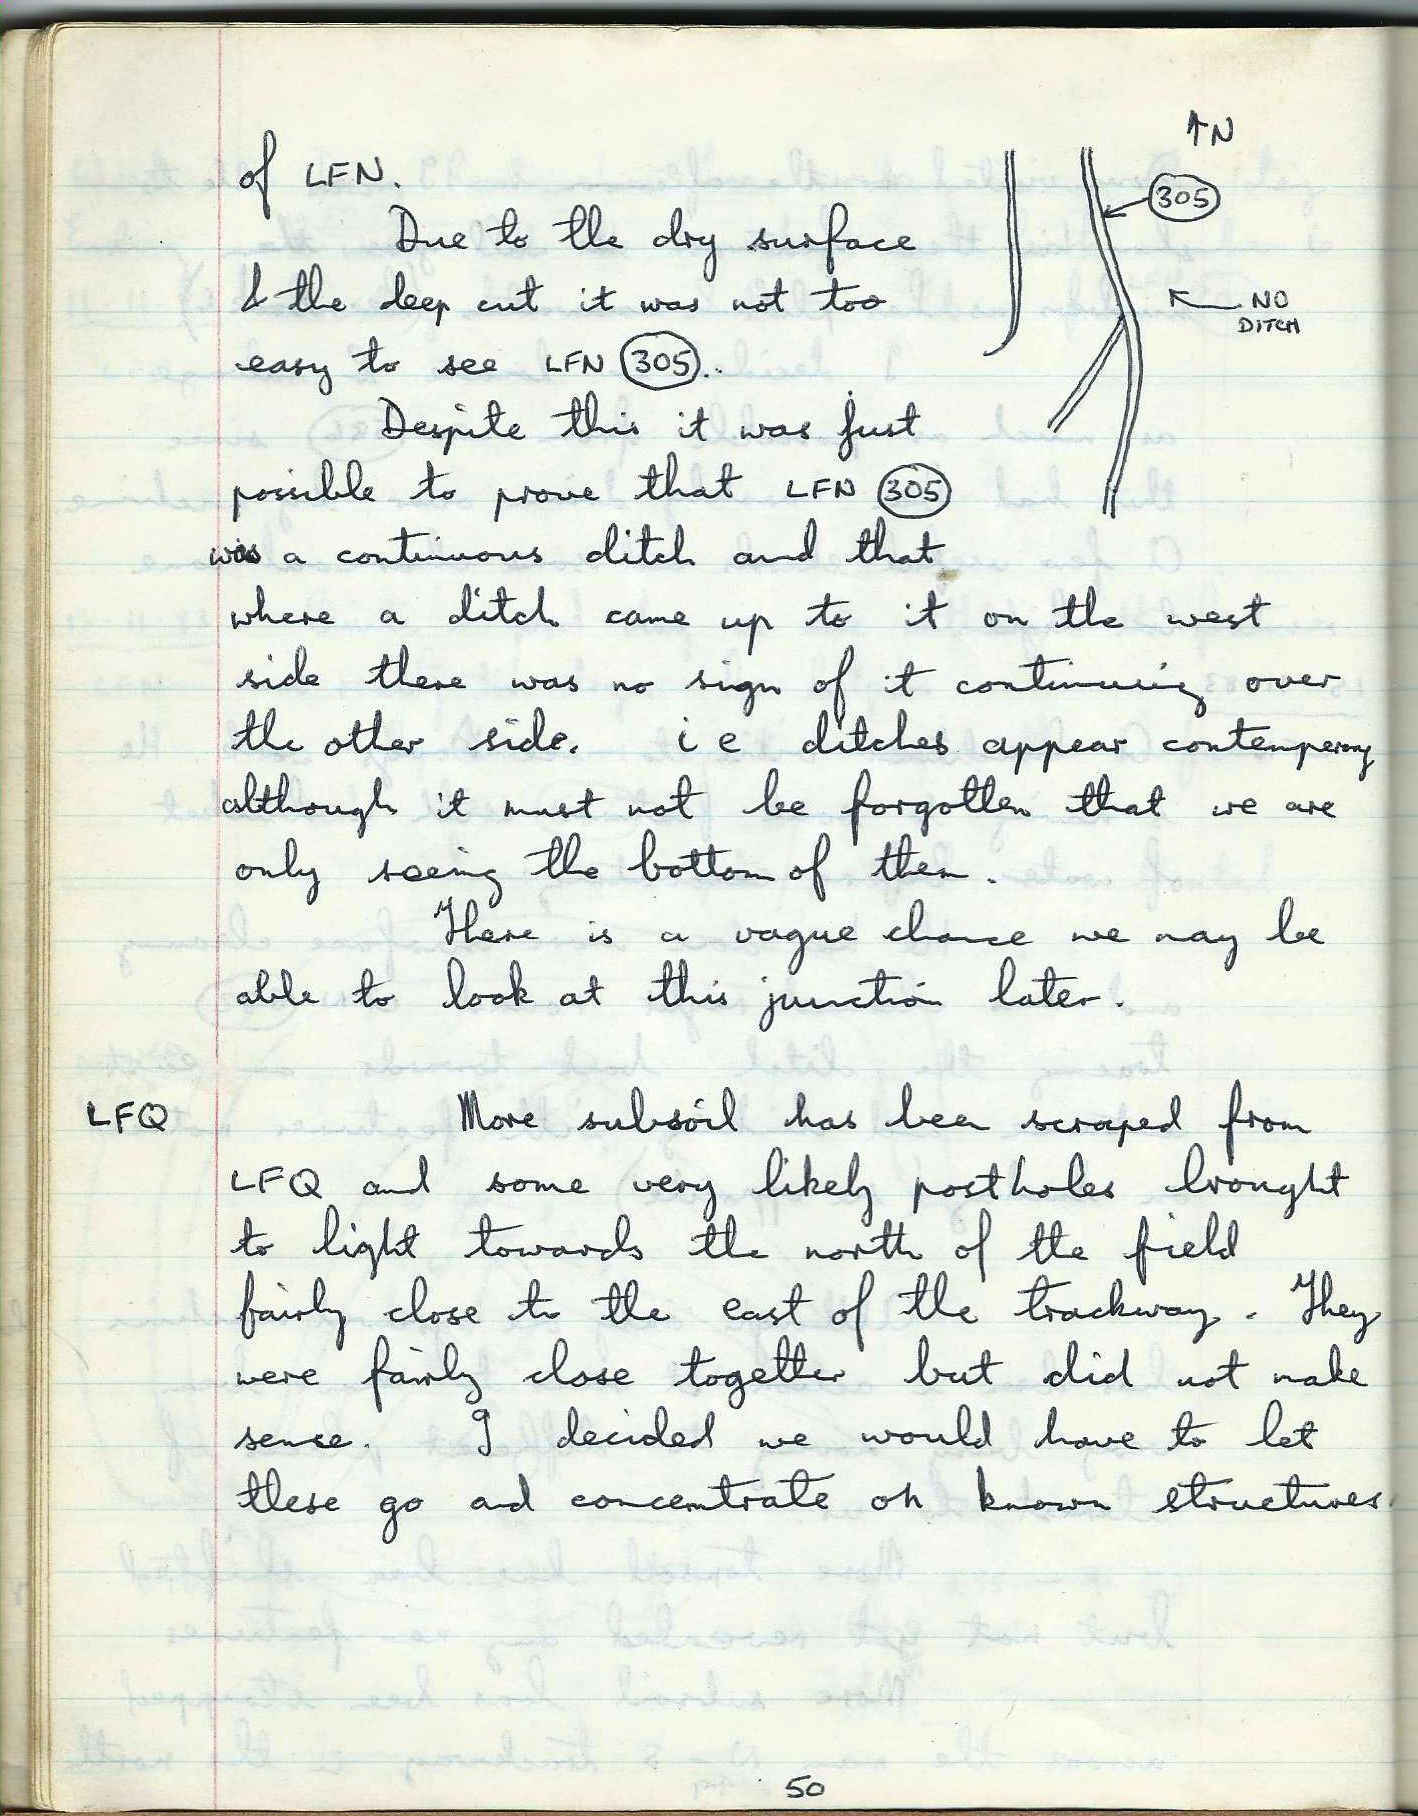 of LFN.
↑N
305
Due to the dry surface
& the deep cut it was not too
NO
DITCH
easy to see LFN 305..
Despite this it was just
possible to prove that LFN 305
was a continuous ditch and that
where a ditch came up to it on the west
side there was no sign of it continuing over
the other side. i e ditches appear contemperary
although it must not be forgotten that we are
only seeing the bottom of them.
There is a vague chance we may be
able to look at this junction later.
LFQ More subsoil has been scraped from
LFQ and some very likely postholes brought
to light towards the north of the field
fairly close to the east of the trackway. They
were fairly close together but did not make
sense. I decided we would have to let
these go and concentrate on known structures.
50